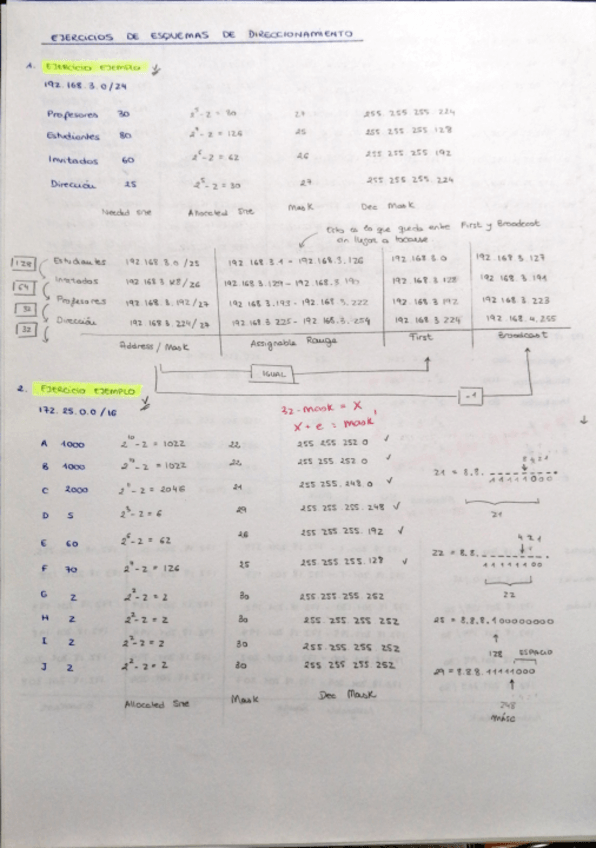 EJERCICIOS DE ESQUEMAS DE DIRECCIONAMIENTO
1. EJERCICIO EJEMPLO
192.168.3.0/24
Profesores 30 2⁵-2 = 30 27 255 255 255.224
Estudiantes 80 2⁷-2 = 126 25 255 255 255.128
Invitados 60 2⁶-2 = 62 26 255 255 255 192
Dirección 25 2⁵-2 = 30 27 255 255 255.224
Needed size Allocated Size Mask Dec Mask
Esto es lo que queda entre First y Broadcast
sin llegar a tocarse
128 Estudiantes 192 168 3.0/25 192 168.3.1 - 192.168.3.126 192 168 3.0 192 168 3.127
64 Invitados 192 168 3 128/26 192 168 3.129 - 192 168 3. 192 168 3 128 192 168 3. 191
32 Profesores 192 168 3.192/27 192 168 3.193 - 192 168.3.222 192 168 3 192 192 168 3. 223
32 Dirección 192 168 3.224/27 192 168 3 225 - 192 168.3.254 192 168 3 224 192 168.4.255
Address/Mask Assignable Range First Broadcast
IGUAL
-1
2. EJERCICIO EJEMPLO
172.25.0.0/16
32-mask = X,
X+e = mask
A 1000 2¹⁰-2 = 1022 22 255 255 252 0 ✓
B 1000 2¹⁰-2 = 1022 22 255 255 252.0 ✓
C 2000 2¹¹-2 = 2046 21 255 255.248 0 ✓
D 5 2³-2 = 6 29 255 255 255.248 ✓
E 60 2⁶-2 = 62 26 255 255 255.192 ✓
F 70 2⁷-2 = 126 25 255 255 255.128 ✓
G 2 2²-2 = 2 30 255 255 255 252
H 2 2²-2 = 2 30 255 255 255 252
I 2 2²-2 = 2 30 255 255 255 252
J 2 2²-2 = 2 30 255 255 255 252
Allocated Size Mask Dec Mask
21 = 8.8.
11111000
21
4 2 1
22 = 8.8.
11111100
22
25 = 8.8.8.100000000
128 ESPACIO
29 = 8.8.8.11111000
248